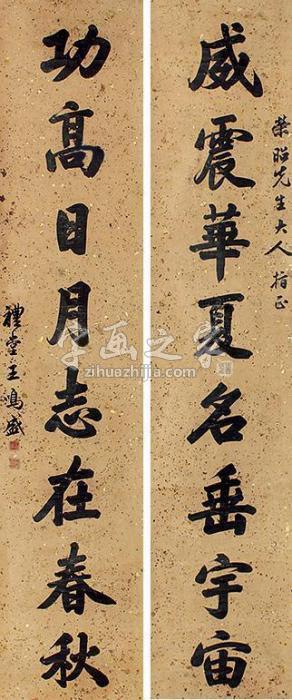 荣昭先生大人指正
威震華夏名垂宇宙
功高日月志在春秋
禮堂王鳴盛
字画之家
zihuazhijia.com